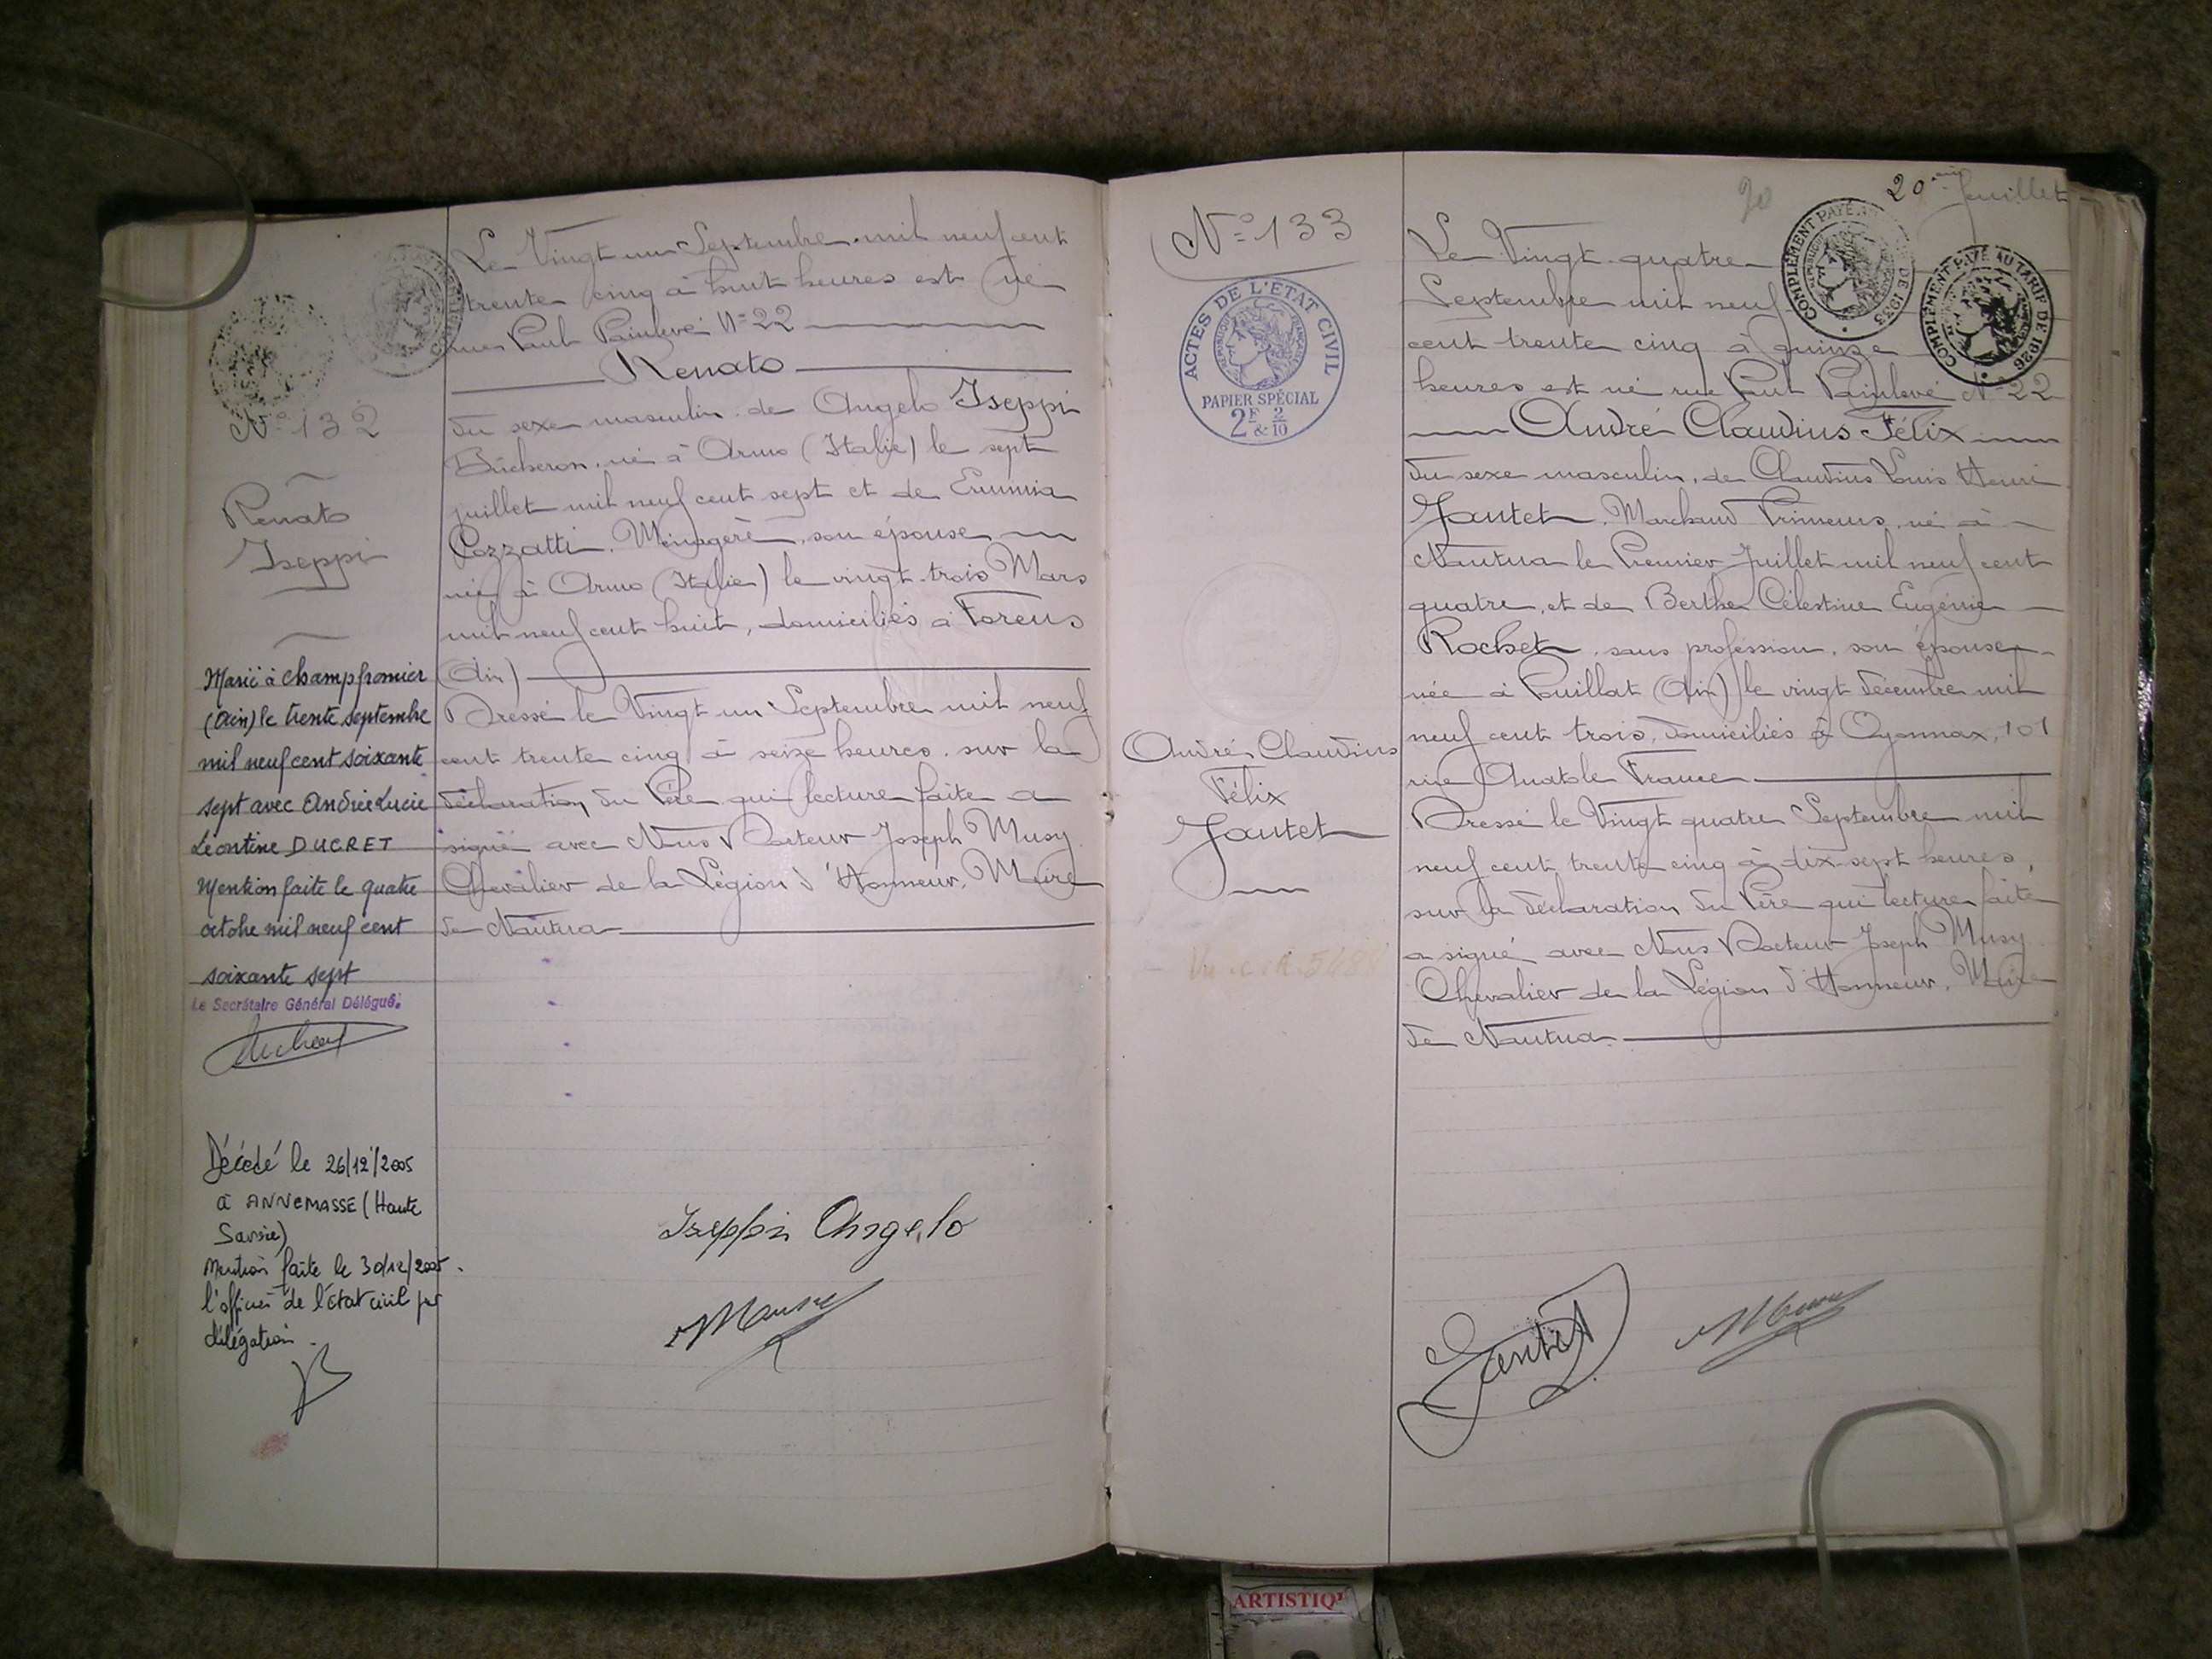 Le Vingt un Septembre mil neuf cent
trente cinq à huit heures est né
rue Paul Painlevé N° 22
Renato
du sexe masculin de Angelo Iseppi
Bûcheron, né à Armo (Italie) le sept
juillet mil neuf cent sept et de Erminia
Cozzatti, Ménagère, son épouse
née à Armo (Italie) le vingt trois Mars
mil neuf cent huit, domiciliés à Forens
(Ain)
Dressé le Vingt un Septembre mil neuf
cent trente cinq à seize heures, sur la
déclaration du Père qui lecture faite a
signé avec Nous Docteur Joseph Musy
Chevalier de la Légion d'Honneur, Maire
de Nantua
Iseppi Angelo
N° 132
Renato
Iseppi
Marié à Champfromier
(Ain) le trente septembre
mil neuf cent soixante
sept avec Andrée Lucie
Léontine DUCRET
Mention faite le quatre
octobre mil neuf cent
soixante sept
Le Secrétaire Général Délégué.
Décédé le 26/12/2005
à ANNEMASSE (Haute
Savoie)
Mention faite le 30/12/2005.
l'officier de l'état civil par
délégation.
N° 133
ACTES DE L'ETAT CIVIL
REPUBLIQUE FRANÇAISE
PAPIER SPÉCIAL
2F & 2/10
André Claudius
Félix
Jantet
20
20ème feuillet
COMPLÉMENT PAYÉ AU TARIF DE 1933
COMPLÉMENT PAYÉ AU TARIF DE 1926
Le Vingt quatre
Septembre mil neuf
cent trente cinq à quinze
heures est né rue Paul Painlevé N° 22
André Claudius Félix
du sexe masculin, de Claudius Louis Henri
Jantet, Marchand Primeurs, né à
Nantua le Premier Juillet mil neuf cent
quatre, et de Berthe Célestine Eugénie
Rochet, sans profession, son épouse
née à Pouillat (Ain) le vingt décembre mil
neuf cent trois, domiciliés à Oyonnax, 101
rue Anatole France
Dressé le Vingt quatre Septembre mil
neuf cent trente cinq à dix sept heures,
sur la déclaration du Père qui lecture faite
a signé avec Nous Docteur Joseph Musy
Chevalier de la Légion d'Honneur, Maire
de Nantua
Jantet
ARTISTIQ